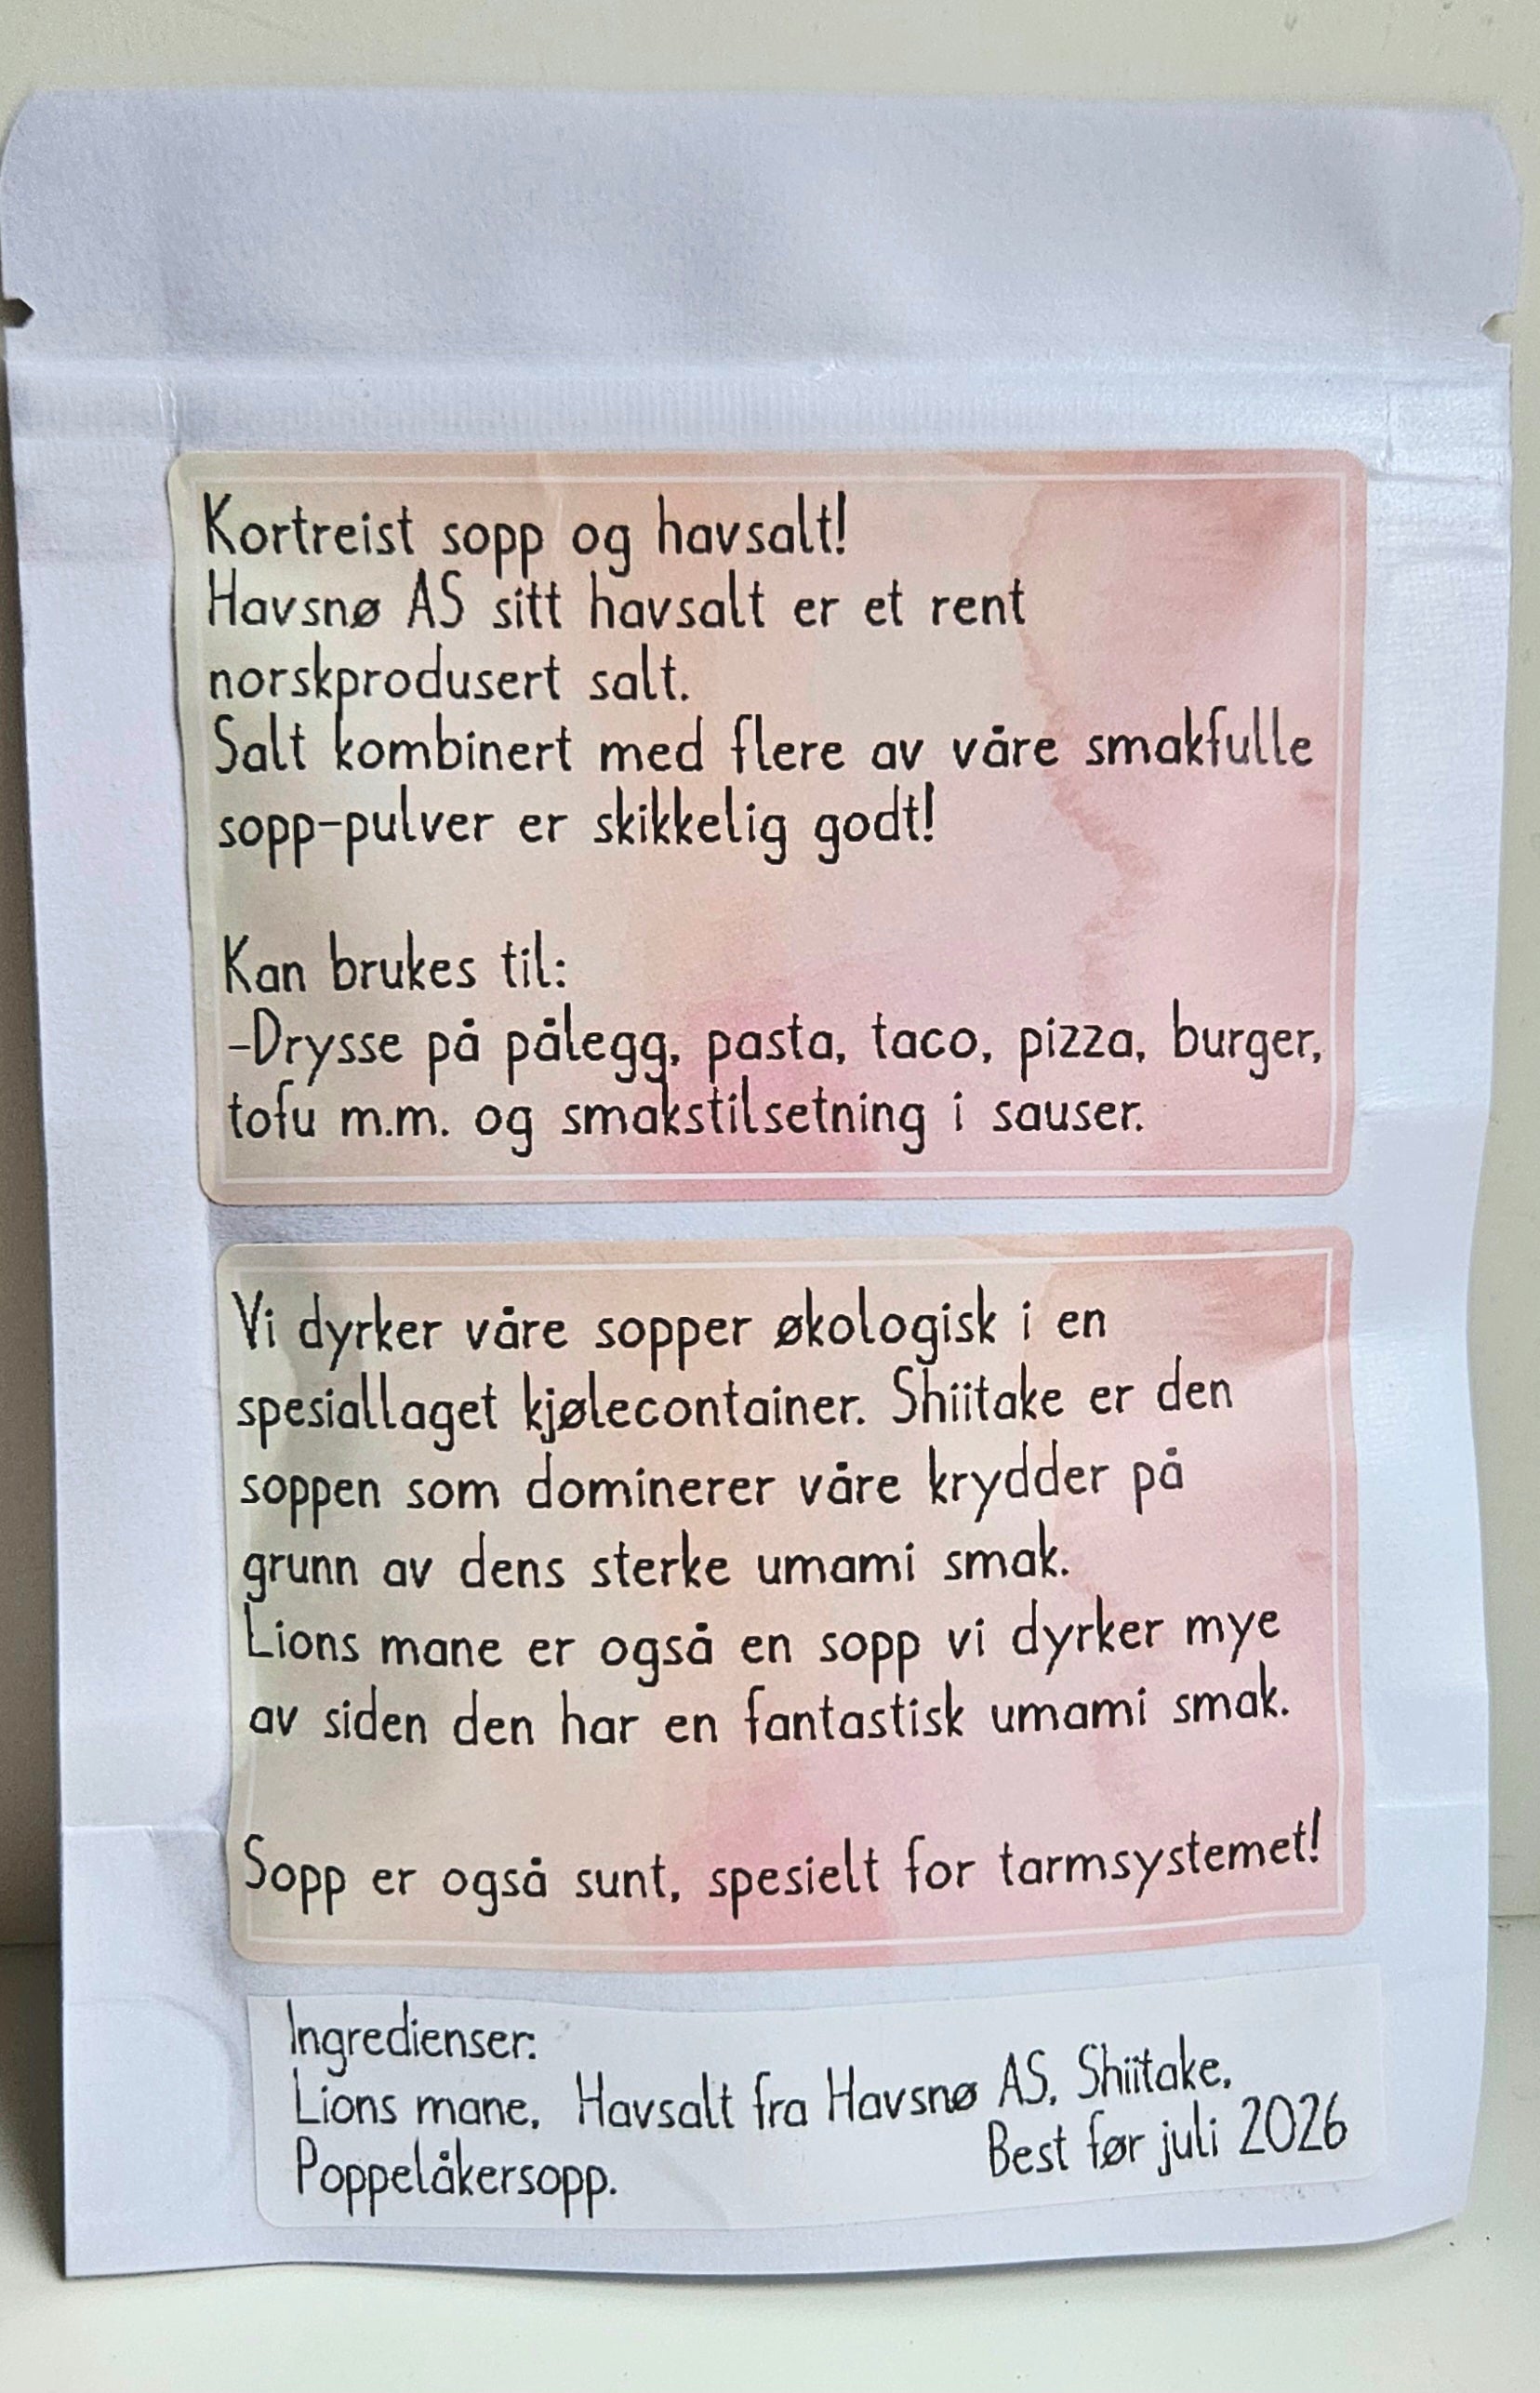 Kortreist sopp og havsalt!
Havsnø AS sitt havsalt er et rent
norskprodusert salt.
Salt kombinert med flere av våre smakfulle
sopp-pulver er skikkelig godt!
Kan brukes til:
-Drysse på pålegg, pasta, taco, pizza, burger,
tofu m.m. og smakstilsetning i sauser.
Vi dyrker våre sopper økologisk i en
spesiallaget kjølecontainer. Shiitake er den
soppen som dominerer våre krydder på
grunn av dens sterke umami smak.
Lions mane er også en sopp vi dyrker mye
av siden den har en fantastisk umami smak.
Sopp er også sunt, spesielt for tarmsystemet!
Ingredienser:
Lions mane, Havsalt fra Havsnø AS, Shiitake,
Poppelåkersopp.
Best før juli 2026